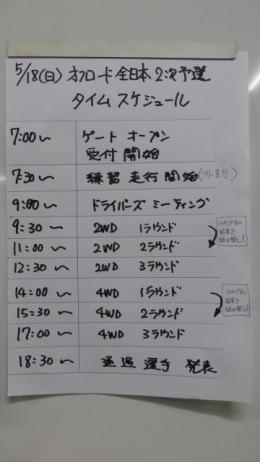 5/18(日) オフロード全日本 2次予選
タイムスケジュール
7:00〜 ゲートオープン
受付開始
7:30〜 練習走行開始(フリー走行)
9:00〜 ドライバーズミーティング
9:30〜 2WD 1ラウンド
11:00〜 2WD 2ラウンド
12:30〜 2WD 3ラウンド
14:00〜 4WD 1ラウンド
15:30〜 4WD 2ラウンド
17:00〜 4WD 3ラウンド
18:30〜 通過選手発表